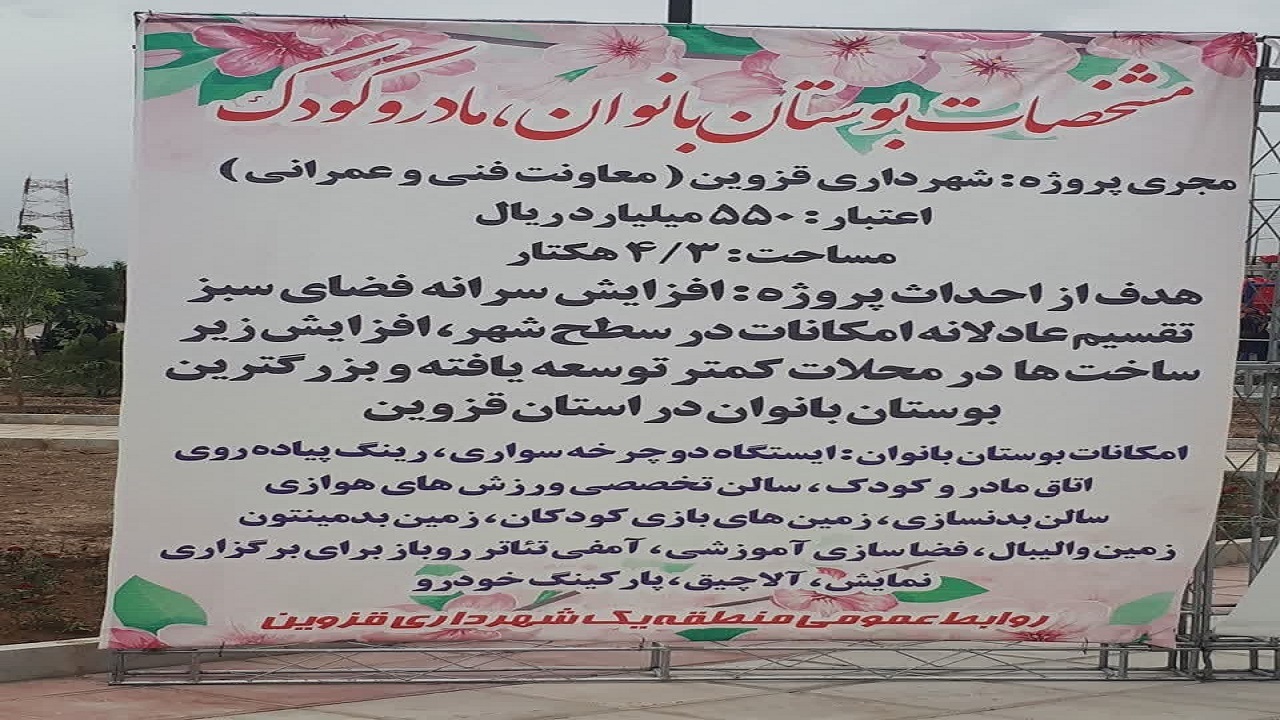 مشخصات بوستان بانوان، مادر و کودک
مجری پروژه: شهرداری قزوین (معاونت فنی و عمرانی)
اعتبار: ۵۵۰ میلیارد ریال
مساحت: ۴/۳ هکتار
هدف از احداث پروژه: افزایش سرانه فضای سبز
تقسیم عادلانه امکانات در سطح شهر، افزایش زیر
ساخت ها در محلات کمتر توسعه یافته و بزرگترین
بوستان بانوان در استان قزوین
امکانات بوستان بانوان: ایستگاه دوچرخه سواری، رینگ پیاده روی
اتاق مادر و کودک، سالن تخصصی ورزش های هوازی
سالن بدنسازی، زمین های بازی کودکان، زمین بدمینتون
زمین والیبال، فضاسازی آموزشی، آمفی تئاتر روباز برای برگزاری
نمایش، آلاچیق، پارکینگ خودرو
روابط عمومی منطقه یک شهرداری قزوین